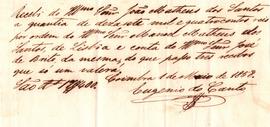 Recebi do Illmo Snr João Matheus dos Santos
a quantia de dezasete mil e quatrocentos reis
por ordem do Illmo Snr Manoel Matheus dos
Santos, de Lisboa e conta do Illmo Snr José
do Canto da mesma, do que papo tres recibos
que só um valerá.
Coimbra 1 de Maio de 1857.
São Rs 17$400.
Eugenio do Canto